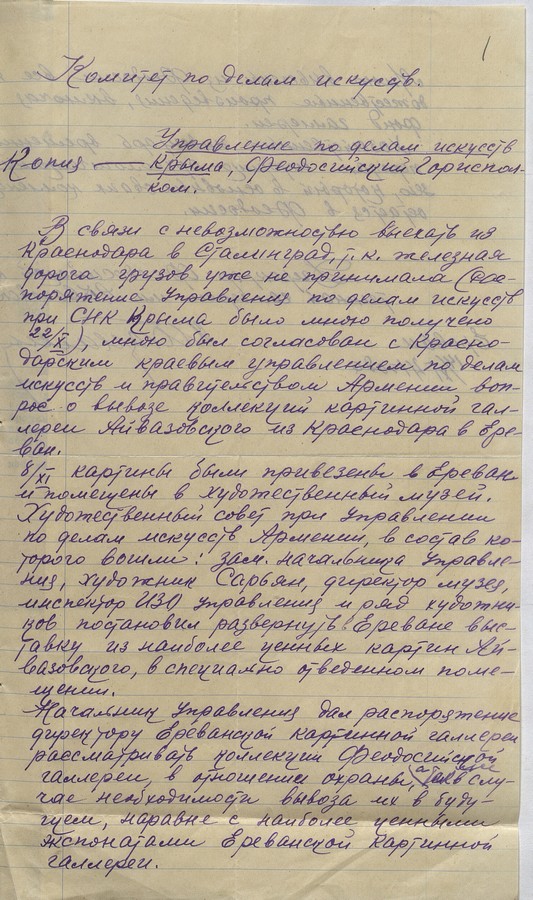 1
Комитет по делам искусств.
Управление по делам искусств
Копия — Крыма, Феодосийский Гориспол-
ком.
В связи с невозможностью выехать из
Краснодара в Сталинград, т.к. железная
дорога грузов уже не принимала (рас-
поряжение Управления по делам искусств
при СНК Крыма было мною получено
22/X), мною был согласован с Красно-
дарским краевым управлением по делам
искусств и правительством Армении воп-
рос о вывозе коллекций картинной гал-
лереи Айвазовского из Краснодара в Ере-
ван.
8/XI картины были привезены в Ереван
и помещены в художественный музей.
Художественный совет при Управлении
по делам искусств Армении, в состав ко-
торого вошли: зам. начальника Управле-
ния, художник Сарьян, директор музея,
инспектор ИЗО управления и ряд художни-
ков постановил развернуть в Ереване выс-
тавку из наиболее ценных картин Ай-
вазовского, в специально отведенном поме-
щении.
Начальник Управления дал распоряжение
директору Ереванской картинной галлереи
рассматривать коллекции Феодосийской
галлереи, в отношении охраны, в слу-
чае необходимости вывоза их в буду-
щем, наравне с наиболее ценными
экспонатами Ереванской картинной
галлереи.